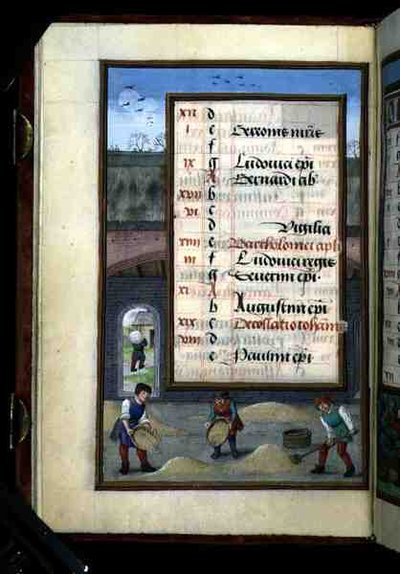 xii d
i e Oxxonie mris
f
ix g Ludovici epi
A Bernardi ab
xvii b
vi c
d Vigilia
xiiii e Bartholomei apli
iii f Ludovici regis
g Severini epi
xi A
b Augustini epi
xix c Decollatio iohan
viii d
e Paulini epi